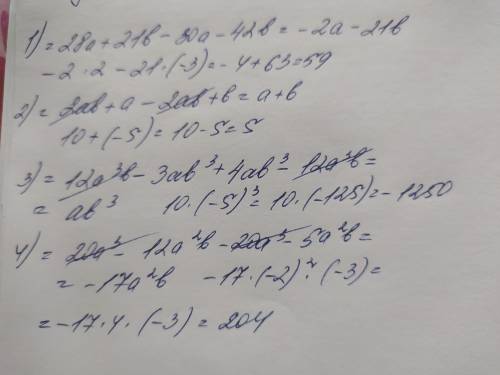 1) = 28a + 21b - 30a - 42b = -2a - 21b
-2 · 2 - 21 · (-3) = -4 + 63 = 59
2) = 3ab + a - 3ab + b = a + b
10 + (-5) = 10 - 5 = 5
3) = 12a³b - 3ab³ + 4ab³ - 12a³b =
= ab³ 10 · (-5)³ = 10 · (-125) = -1250
4) = 20a³ - 12a²b - 20a³ - 5a²b =
= -17a²b -17 · (-2)² · (-3) =
= -17 · 4 · (-3) = 204